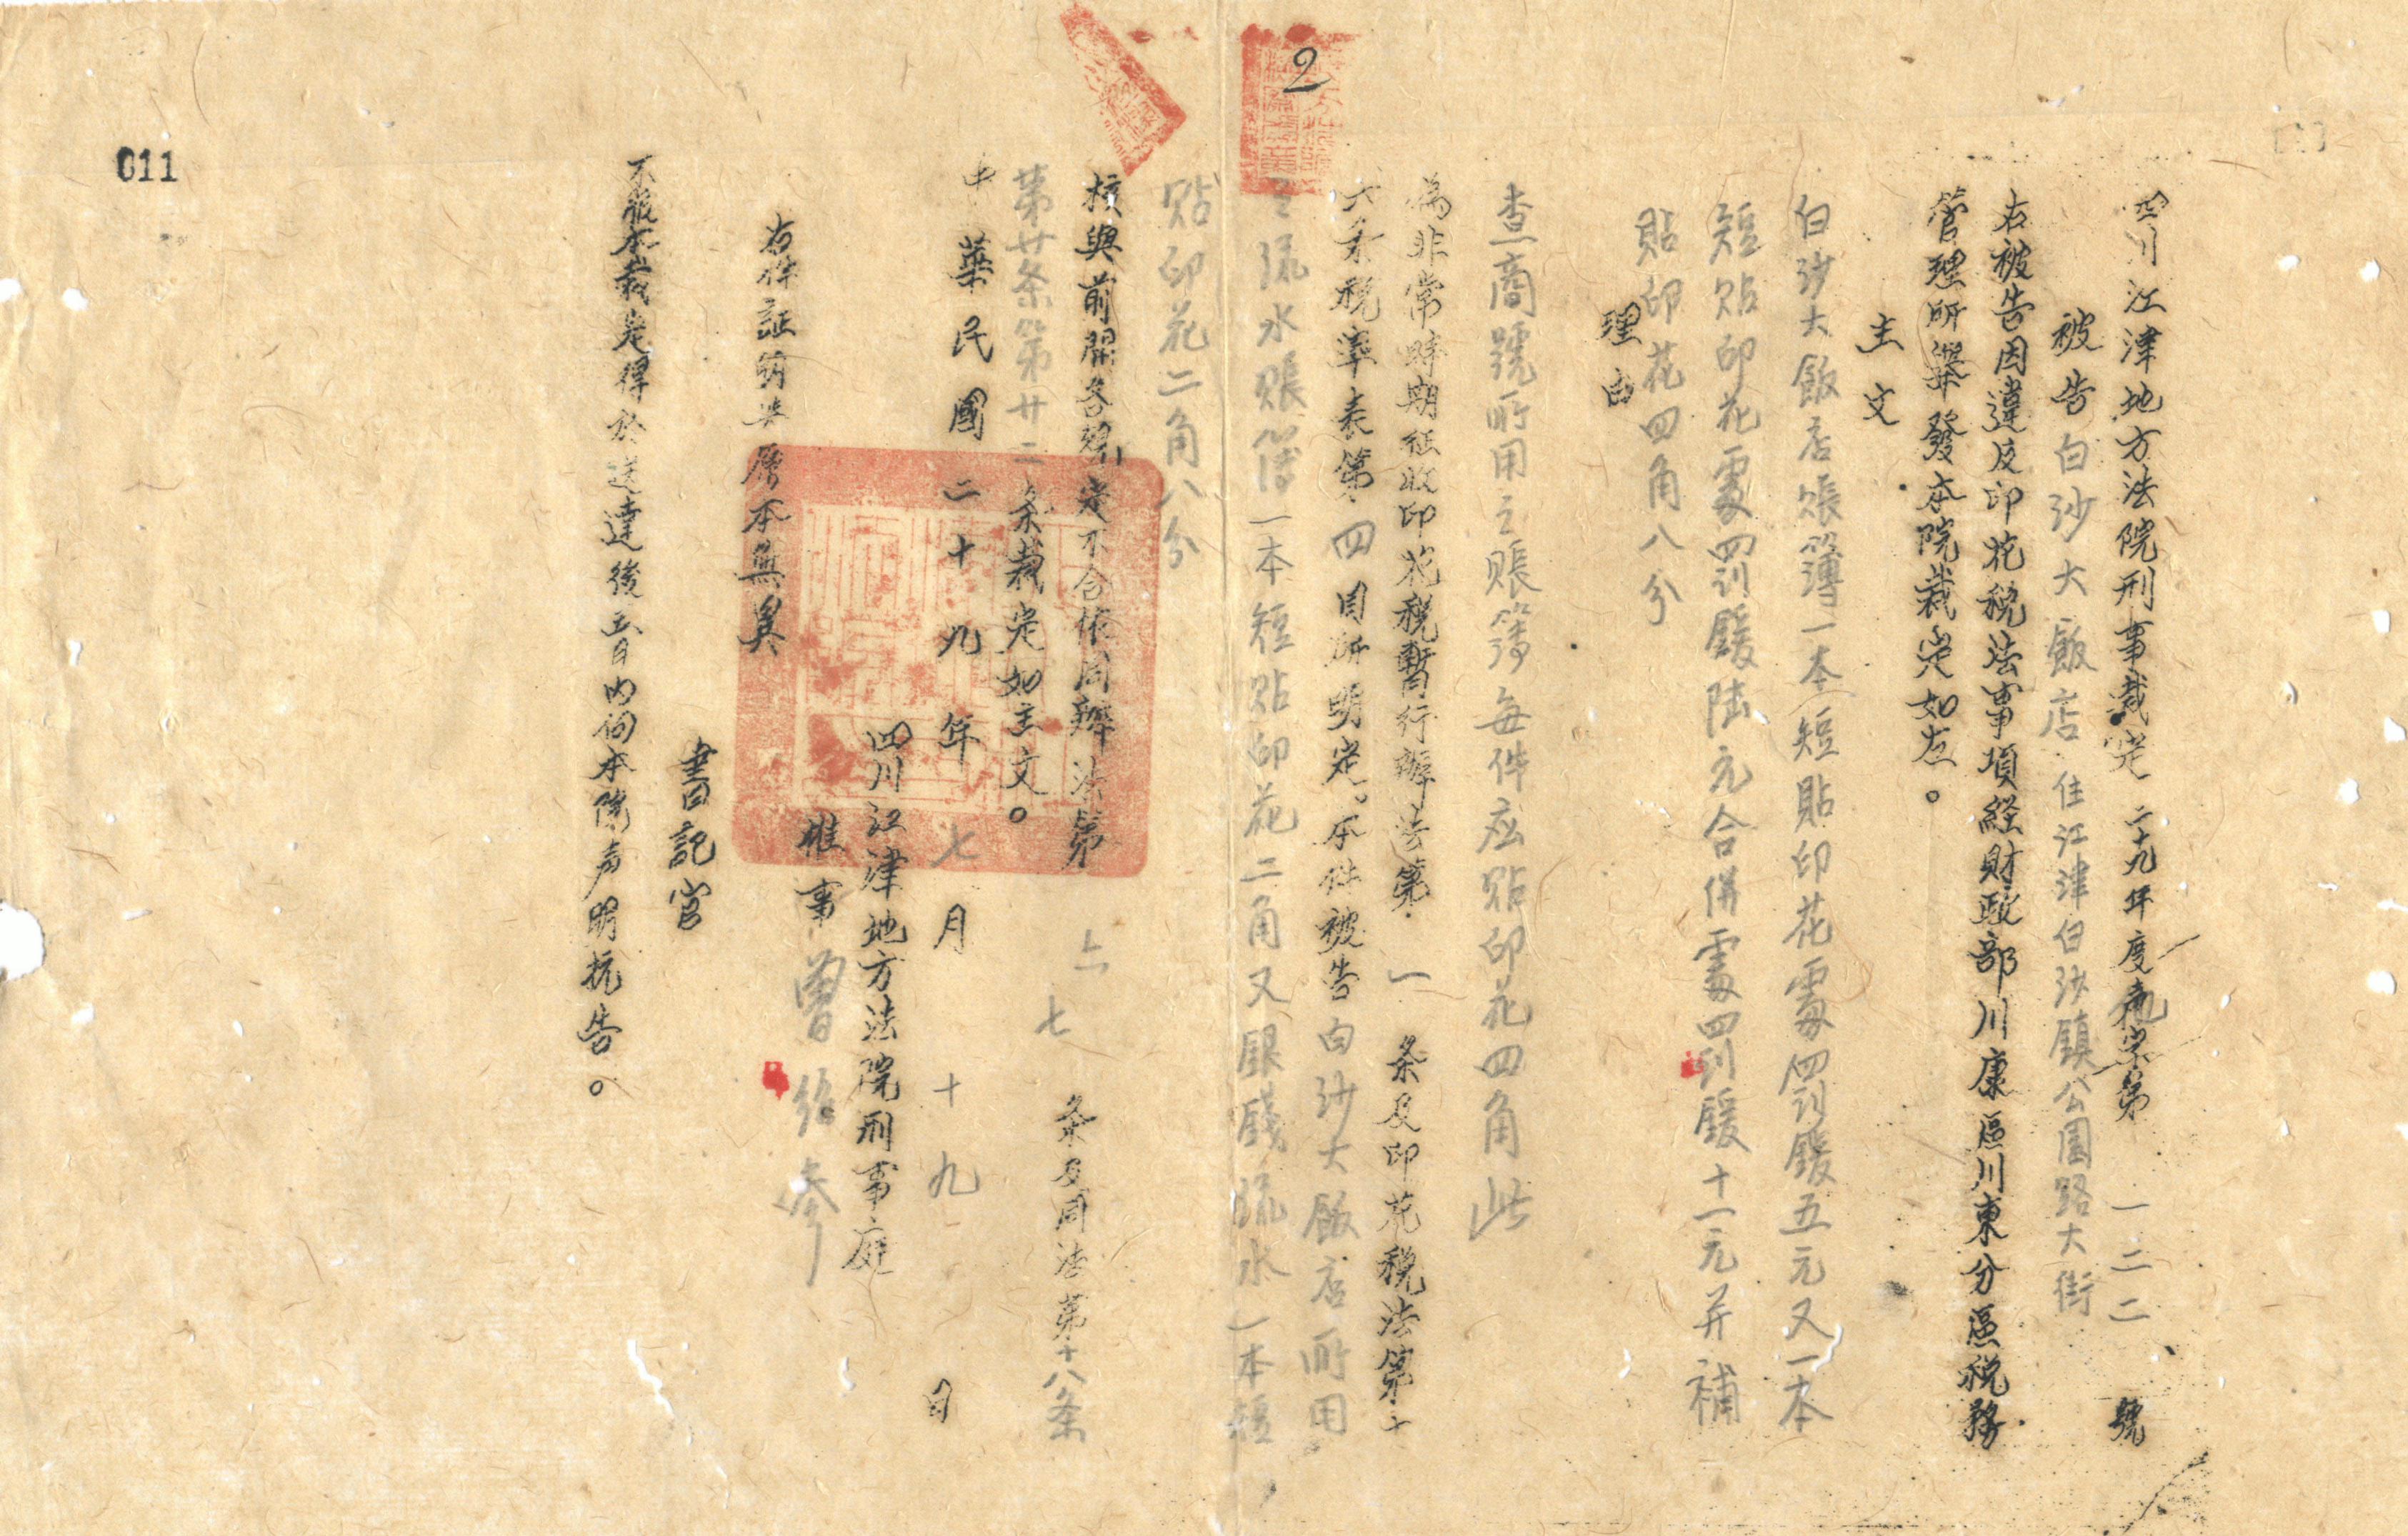 四川江津地方法院刑事裁定 二十九年度商字第 一二二 號
被告白沙大飯店 住江津白沙鎮公園路大街
右被告因違反印花稅法事項経財政部川康區川東分區稅務
管理所舉發本院裁定如左。
主文
白沙大飯店賬簿一本短貼印花處罰鍰五元又一本
短貼印花處罰鍰陸元合併處罰鍰十一元并補
貼印花四角八分
理由
查商號所用之賬簿每件应貼印花四角此
為非常時期征收印花稅暫行辦法第 一 条及印花稅法第十
六条稅率表第 四 目所明定。本件被告白沙大飯店所用
之流水賬簿一本短貼印花二角又銀錢流水一本短
貼印花二角八分
核與前開各規定不合依同辦法第 六 七 条及同法第十八条
第廿条第廿三条裁定如主文。
中華民國二十九年七月十九日
四川江津地方法院刑事庭
推事 曾
右件証明與原本無異
書記官
不服本裁定得於送達後五日內向本院声明抗告。
011
2